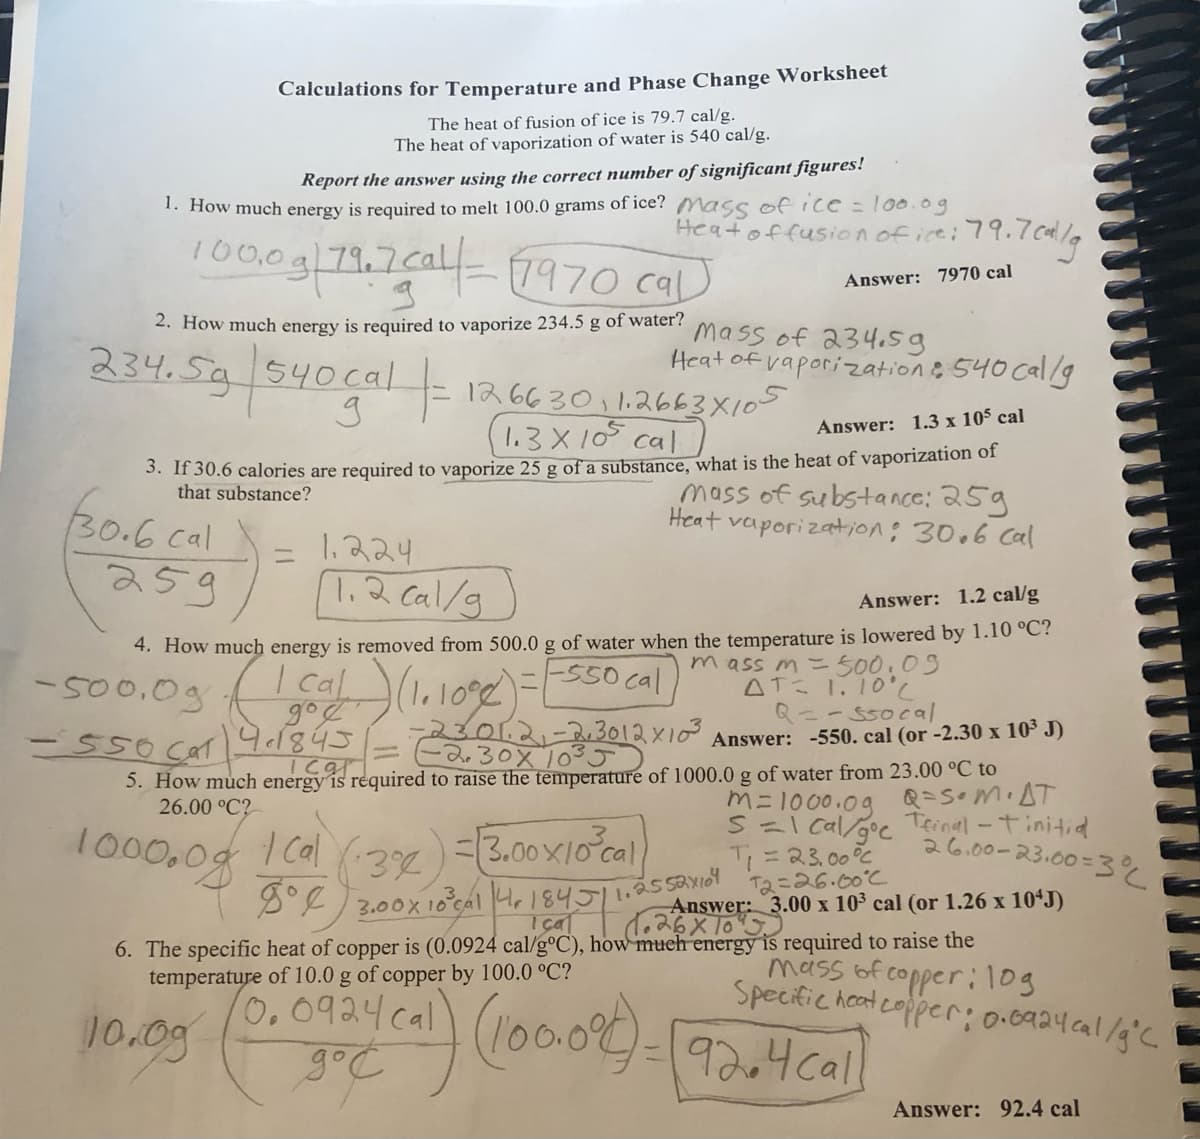 Calculations for Temperature and Phase Change Worksheet
The heat of fusion of ice is 79.7 cal/g.
The heat of vaporization of water is 540 cal/g.
Report the answer using the correct number of significant figures!
1. How much energy is required to melt 100.0 grams of ice? Mass of ice = 100.0g
Heat of fusion of ice: 79.7 cal/g
100.0g | 79.7 cal
g | = 7970 cal
Answer: 7970 cal
2. How much energy is required to vaporize 234.5 g of water?
Mass of 234.5g
Heat of vaporization: 540 cal/g
234.5g | 540 cal
g | = 126630, 1.2663 x 10⁵
1.3 x 10⁵ cal
Answer: 1.3 x 10⁵ cal
3. If 30.6 calories are required to vaporize 25 g of a substance, what is the heat of vaporization of
that substance?
Mass of substance: 25g
Heat vaporization: 30.6 cal
30.6 cal
25g
= 1.224
1.2 cal/g
Answer: 1.2 cal/g
4. How much energy is removed from 500.0 g of water when the temperature is lowered by 1.10 ºC?
mass m = 500.0g
ΔT = 1.10°C
Q = -550cal
-500.0g (1 cal
g°C) (1.10°C) = -550 cal
-550 cal | 4.184J
1 cal | = -2301.2, -2.3012 x 10³
-2.30 x 10³ J
Answer: -550. cal (or -2.30 x 10³ J)
5. How much energy is required to raise the temperature of 1000.0 g of water from 23.00 ºC to
26.00 ºC?
m = 1000.0g Q = S•M•ΔT
S = 1 cal/g°C Tfinal - Tinitial
T₁ = 23.00°C 26.00-23.00 = 3°C
T2 = 26.00°C
1000.0g 1 cal
g°C (3°C) = 3.00x10³ cal
3.00 x 10³ cal | 4.184J
1 cal | 1.2552x10⁴
1.26 x 10⁴ J
Answer: 3.00 x 10³ cal (or 1.26 x 10⁴J)
6. The specific heat of copper is (0.0924 cal/gºC), how much energy is required to raise the
temperature of 10.0 g of copper by 100.0 ºC?
Mass of copper: 10g
Specific heat copper: 0.0924 cal/g°C
10.0g (0.0924 cal
g°C) (100.0°C) = 92.4 cal
Answer: 92.4 cal